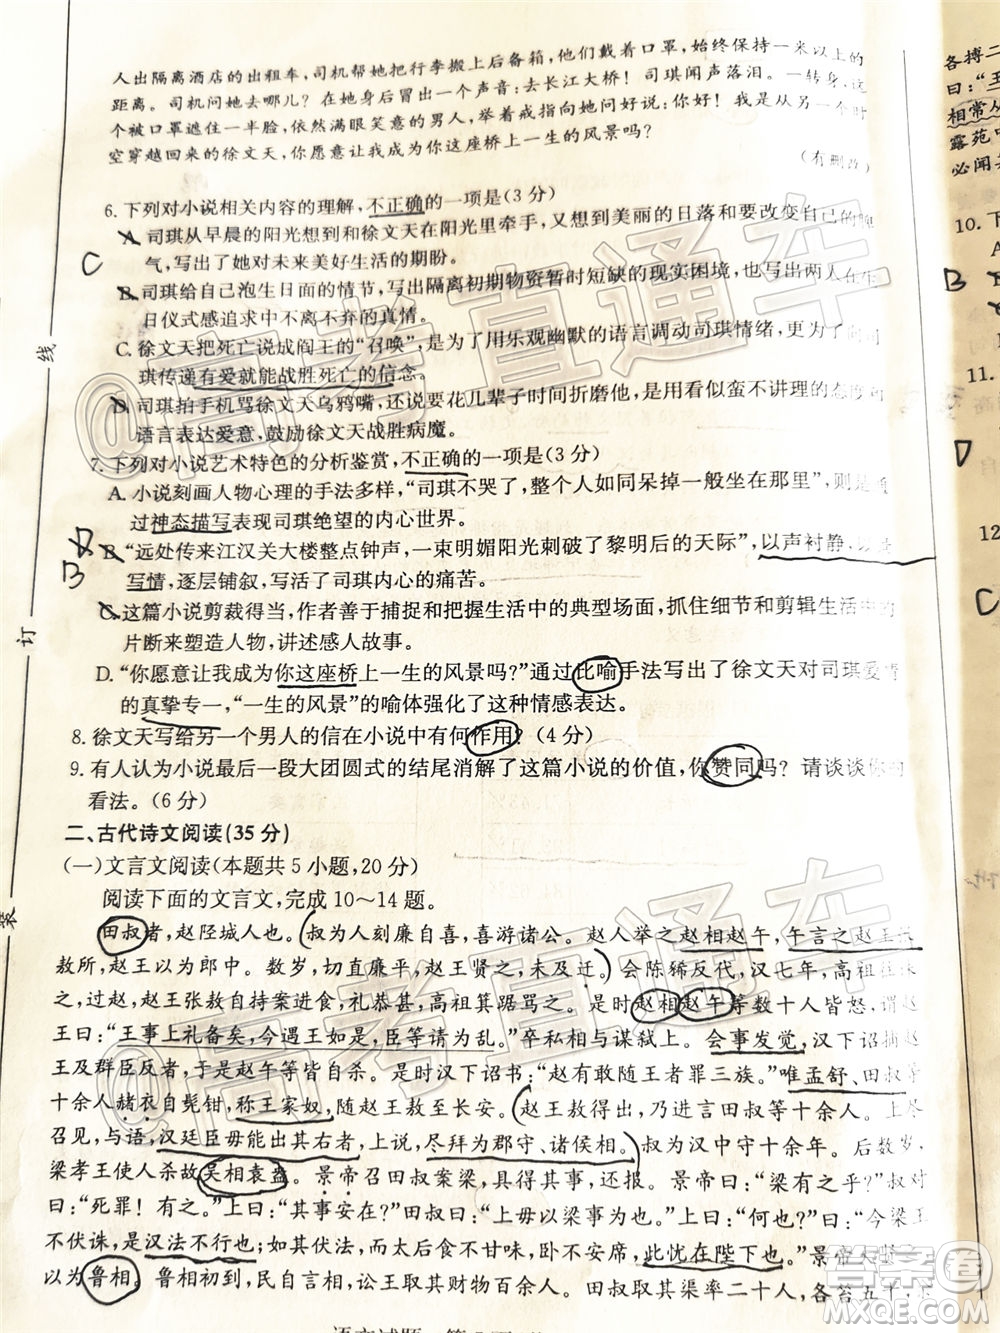 人出隔离酒店的出租车,司机帮她把行李搬上后备箱,他们戴着口罩,始终保持一米以上的
距离。司机问她去哪儿?在她身后有一个声音:去长江大桥!司琪闻声落泪。一转身,这
个被口罩遮住一半脸,依然满眼笑意的男人,举着戒指向她问好说:你好!我是从另一个时
空穿越回来的徐文天,你愿意让我成为你这座桥上一生的风景吗?
(有删改)
6.下列对小说相关内容的理解,不正确的一项是(3分)
A.司琪从早晨的阳光想到和徐文天在阳光里牵手,又想到美丽的日落和要改变自己的脾
气,写出了她对未来美好生活的期盼。
B.司琪给自己泡生日面的情节,写出隔离初期物资暂时短缺的现实困境,也写出了在生
日仪式感追求中不离不弃的真情。
C.徐文天把死亡说成阎王的“召唤”,是为了用乐观幽默的语言调动司琪情绪,更为了向司
琪传递有爱就能战胜死亡的信念。
D.司琪拍手机骂徐文天乌鸦嘴,还说要花几辈子时间折磨他,是用看似蛮不讲理的态度和
语言表达爱意,鼓励徐文天战胜病魔。
7.下列对小说艺术特色的分析鉴赏,不正确的一项是(3分)
A.小说刻画人物心理的手法多样,“司琪不哭了,整个人如同呆掉一般坐在那里”,则是通
过神态描写表现司琪绝望的内心世界。
B.“远处传来江汉关大楼整点钟声,一束明媚阳光刺破了黎明后的天际”,以声衬静,以景
写情,逐层铺叙,渲染了司琪内心的痛苦。
C.这篇小说剪裁得当,作者善于捕捉和把握生活中的典型场面,抓住细节和剪辑生活中的
片断来塑造人物,讲述感人故事。
D.“你愿意让我成为你这座桥上一生的风景吗?”通过比喻手法写出了徐文天对司琪爱情
的真挚专一,“一生的风景”的喻体强化了这种情感表达。
8.徐文天写给另一个男人的信在小说中有何作用?(4分)
9.有人认为小说最后一段大团圆式的结尾消解了这篇小说的价值,你赞同吗?请谈谈你的
看法。(6分)
二、古代诗文阅读(35分)
(一)文言文阅读(本题共5小题,20分)
阅读下面的文言文,完成10~14题。
田叔者,赵陉城人也。叔为人刻廉自喜,喜游诸公。赵人举之赵相赵午,午言之赵王张
敖所,赵王以为郎中。数岁,切直廉平,赵王贤之,未及迁。会陈豨反代,汉七年,高祖往诛
之,过赵,赵王张敖自持案进食,礼恭甚,高祖箕踞骂之。是时赵相赵午等数十人皆怒,谓赵
王曰:“王事上礼备矣,今遇王如是,臣等请为乱。”卒私相与谋弑上。会事发觉,汉下诏捕赵
王及群臣反者,于是赵午等皆自杀,唯贯高就系。是时汉下诏书:“赵有敢随王者罪三族。”唯孟舒、田叔等
十余人赭衣自髡钳,称王家奴,随赵王敖至长安。赵王敖得出,乃进言田叔等十余人。上尽
召见,与语,汉廷臣毋能出其右者,上说,尽拜为郡守、诸侯相。叔为汉中守十余年。后数岁,
梁孝王使人杀故吴相袁盎。景帝召田叔案梁,具得其事,还报。景帝曰:“梁有之乎?”叔对
曰:“死罪!有之。”上曰:“其事安在?”田叔曰:“上毋以梁事为也。”上曰:“何也?”曰:“今梁王
不伏诛,是汉法不行也;如其伏法,而太后食不甘味,卧不安席,此忧在陛下也。”景帝大贤之,
以为鲁相。鲁相初到,民自言相,讼王取其财物百余人。田叔取其渠率二十人,各笞五十,余
各搏二
曰:“王
相常从
露苑中
必闻其
10.下
A
B
11.
D
12
C
线
订
装
C
B
@高考直通车
@高考直通车
答案圈
MXQE.COM